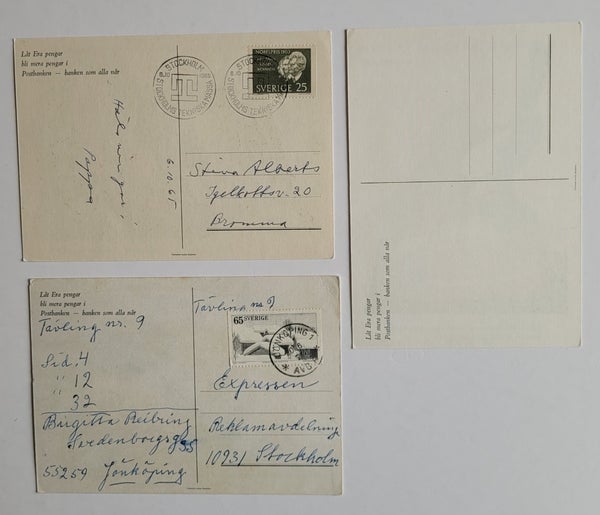 Låt Era pengar
bli mera pengar i
Postbanken — banken som alla når
STOCKHOLM
6.10 1965
STOCKHOLMS TEKNISKA MÄSSA
STOCKHOLM
6.10
STOCKHOLMS TEKNISKA
NOBELPRIS 1905
SVERIGE 25
Pappa
6.10 65
Stina Alberts
Bromma
Låt Era pengar
bli mera pengar i
Postbanken — banken som alla når
Tävling nr. 9
Sid. 4
" 12
32
Birgitta Reibring
Swedenborgsg 35
55259 Jönköping
Tävling nr 9
65 SVERIGE
JÖNKÖPING 1
AVG
Expressen
Reklamavdelning
10931 Stockholm
Låt Era pengar
bli mera pengar i
Postbanken — banken som alla når